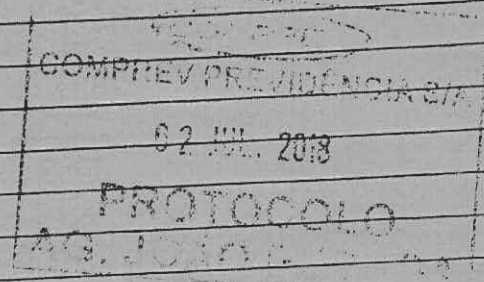 COMPREV PREVIDENCIA S/A
02 JUL. 2018
PROTOCOLO
AG.